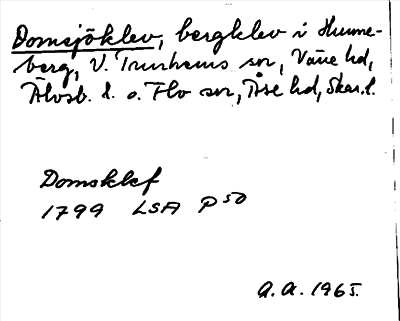 Domsjöklev, bergklev i Hunne-
berg, V. Tunhems sn, Väne hd,
Älvsb. l. o. Flo sn, Åse hd, Skar. l.
Domsklef
1799 LSA P50
A.A. 1965.